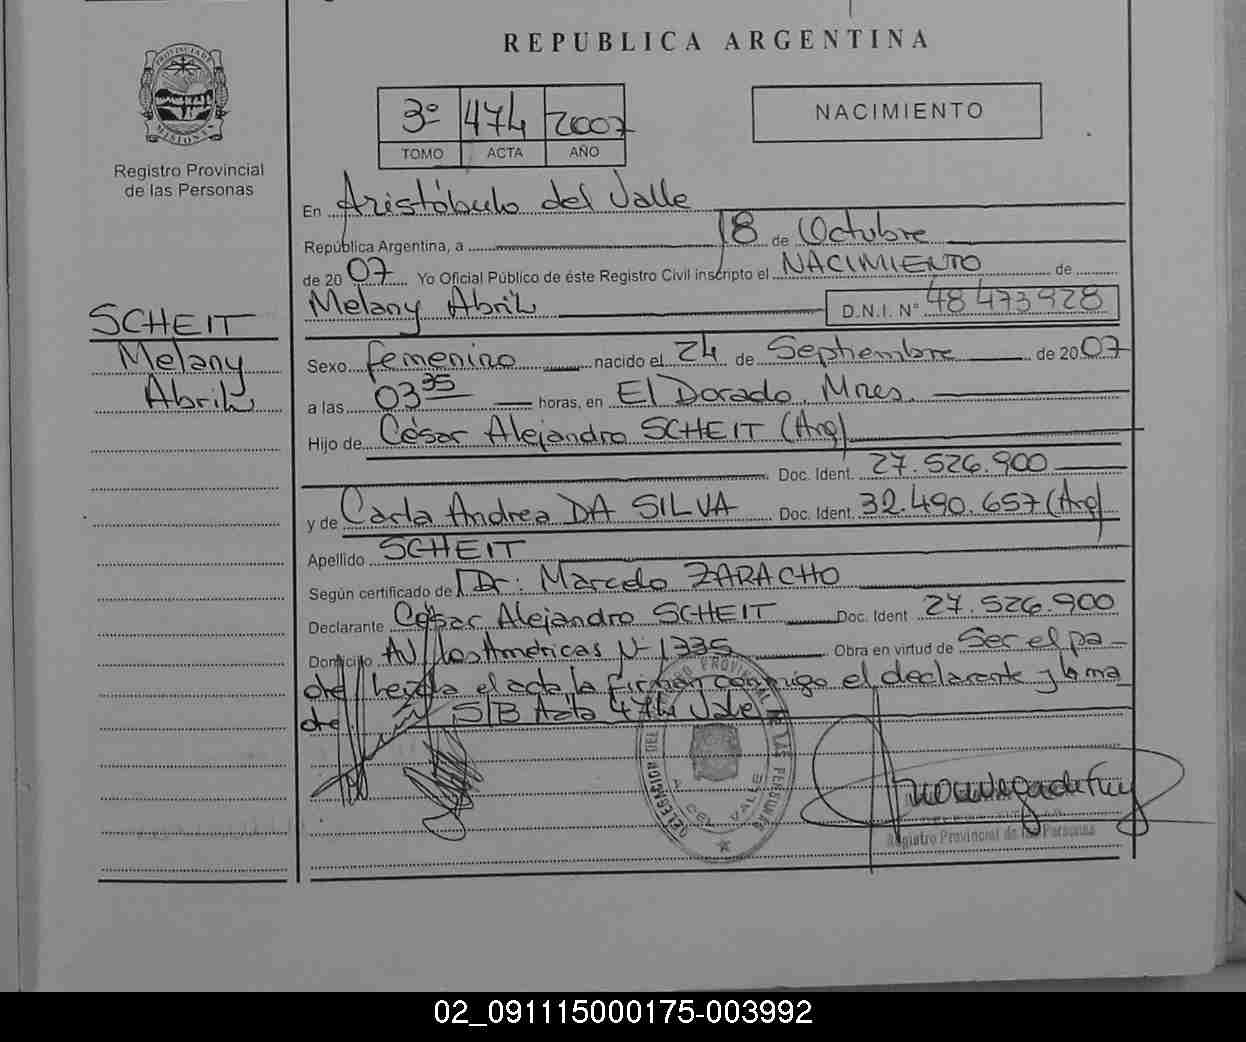 REPUBLICA ARGENTINA
PROVINCIA DE
MISIONES
Registro Provincial
de las Personas
3º 474 2007
TOMO ACTA AÑO
NACIMIENTO
En Aristóbulo del Valle
República Argentina, a 18 de Octubre
de 2007 Yo Oficial Público de éste Registro Civil inscripto el NACIMIENTO de
Melany Abril D.N.I. Nº 48 473 928
SCHEIT
Melany
Abril
Sexo femenino nacido el 24 de Septiembre de 2007
a las 03 35 horas, en El Dorado, Mnes.
Hijo de César Alejandro SCHEIT (Arg)
Doc. Ident. 27.526.900
y de Carla Andrea DA SILVA Doc. Ident. 32.490.657 (Arg)
Apellido SCHEIT
Según certificado de Dr: Marcelo ZARACHO
Declarante César Alejandro SCHEIT Doc. Ident 27.526.900
Domicilio AV. los Américas Nº 1335 Obra en virtud de Ser el pa-
dre leida el acta, la firman conmigo el declarante y la ma
dre S/B Acta 474 Vale
DELEGACION DEL REGISTRO PROVINCIAL DE LAS PERSONAS
A. DEL VALLE
Registro Provincial de las Personas
02_091115000175-003992